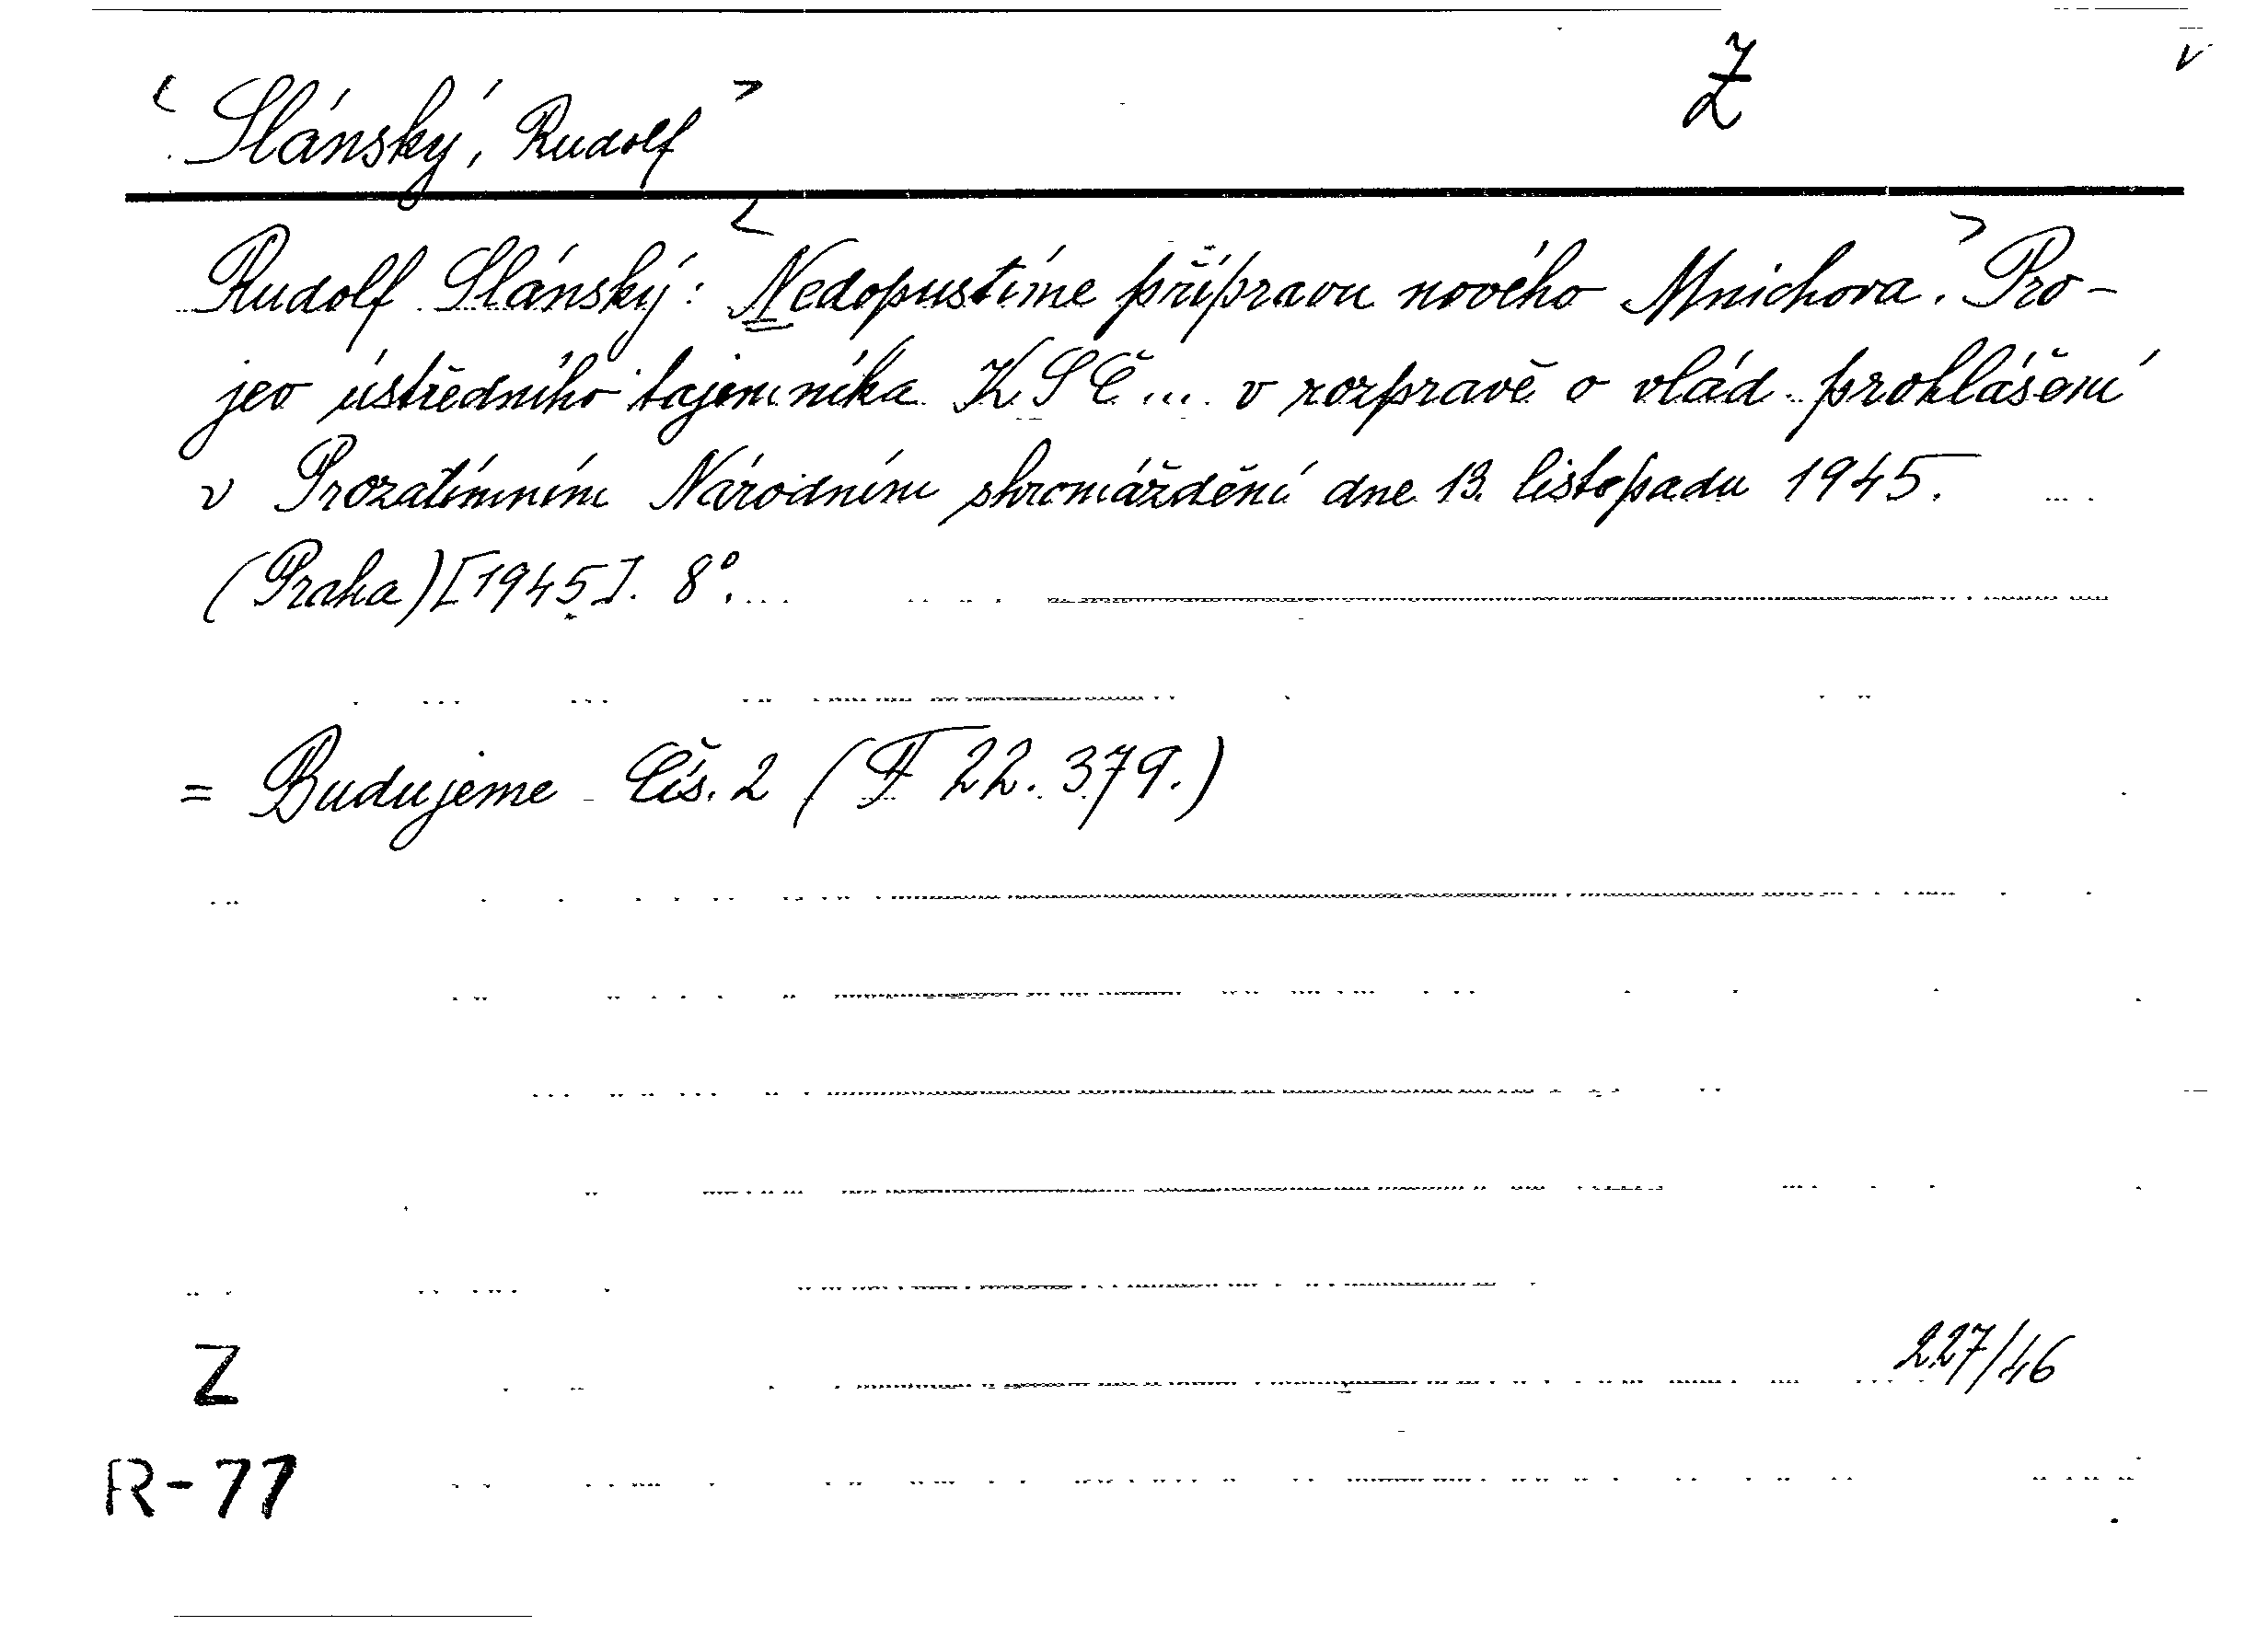 < Slánský, Rudolf > Z v
Rudolf Slánský: < Nedopustíme přípravu nového Mnichova. > Pro-
jev ústředního tajemníka KSČ ... v rozpravě o vlád. prohlášení
v Prozatímním Národním shromáždění dne 13. listopadu 1945.
(Praha) [1945]. 8°.
= Budujeme Čís. 2 (F 22.379.)
Z 227/46
R-77